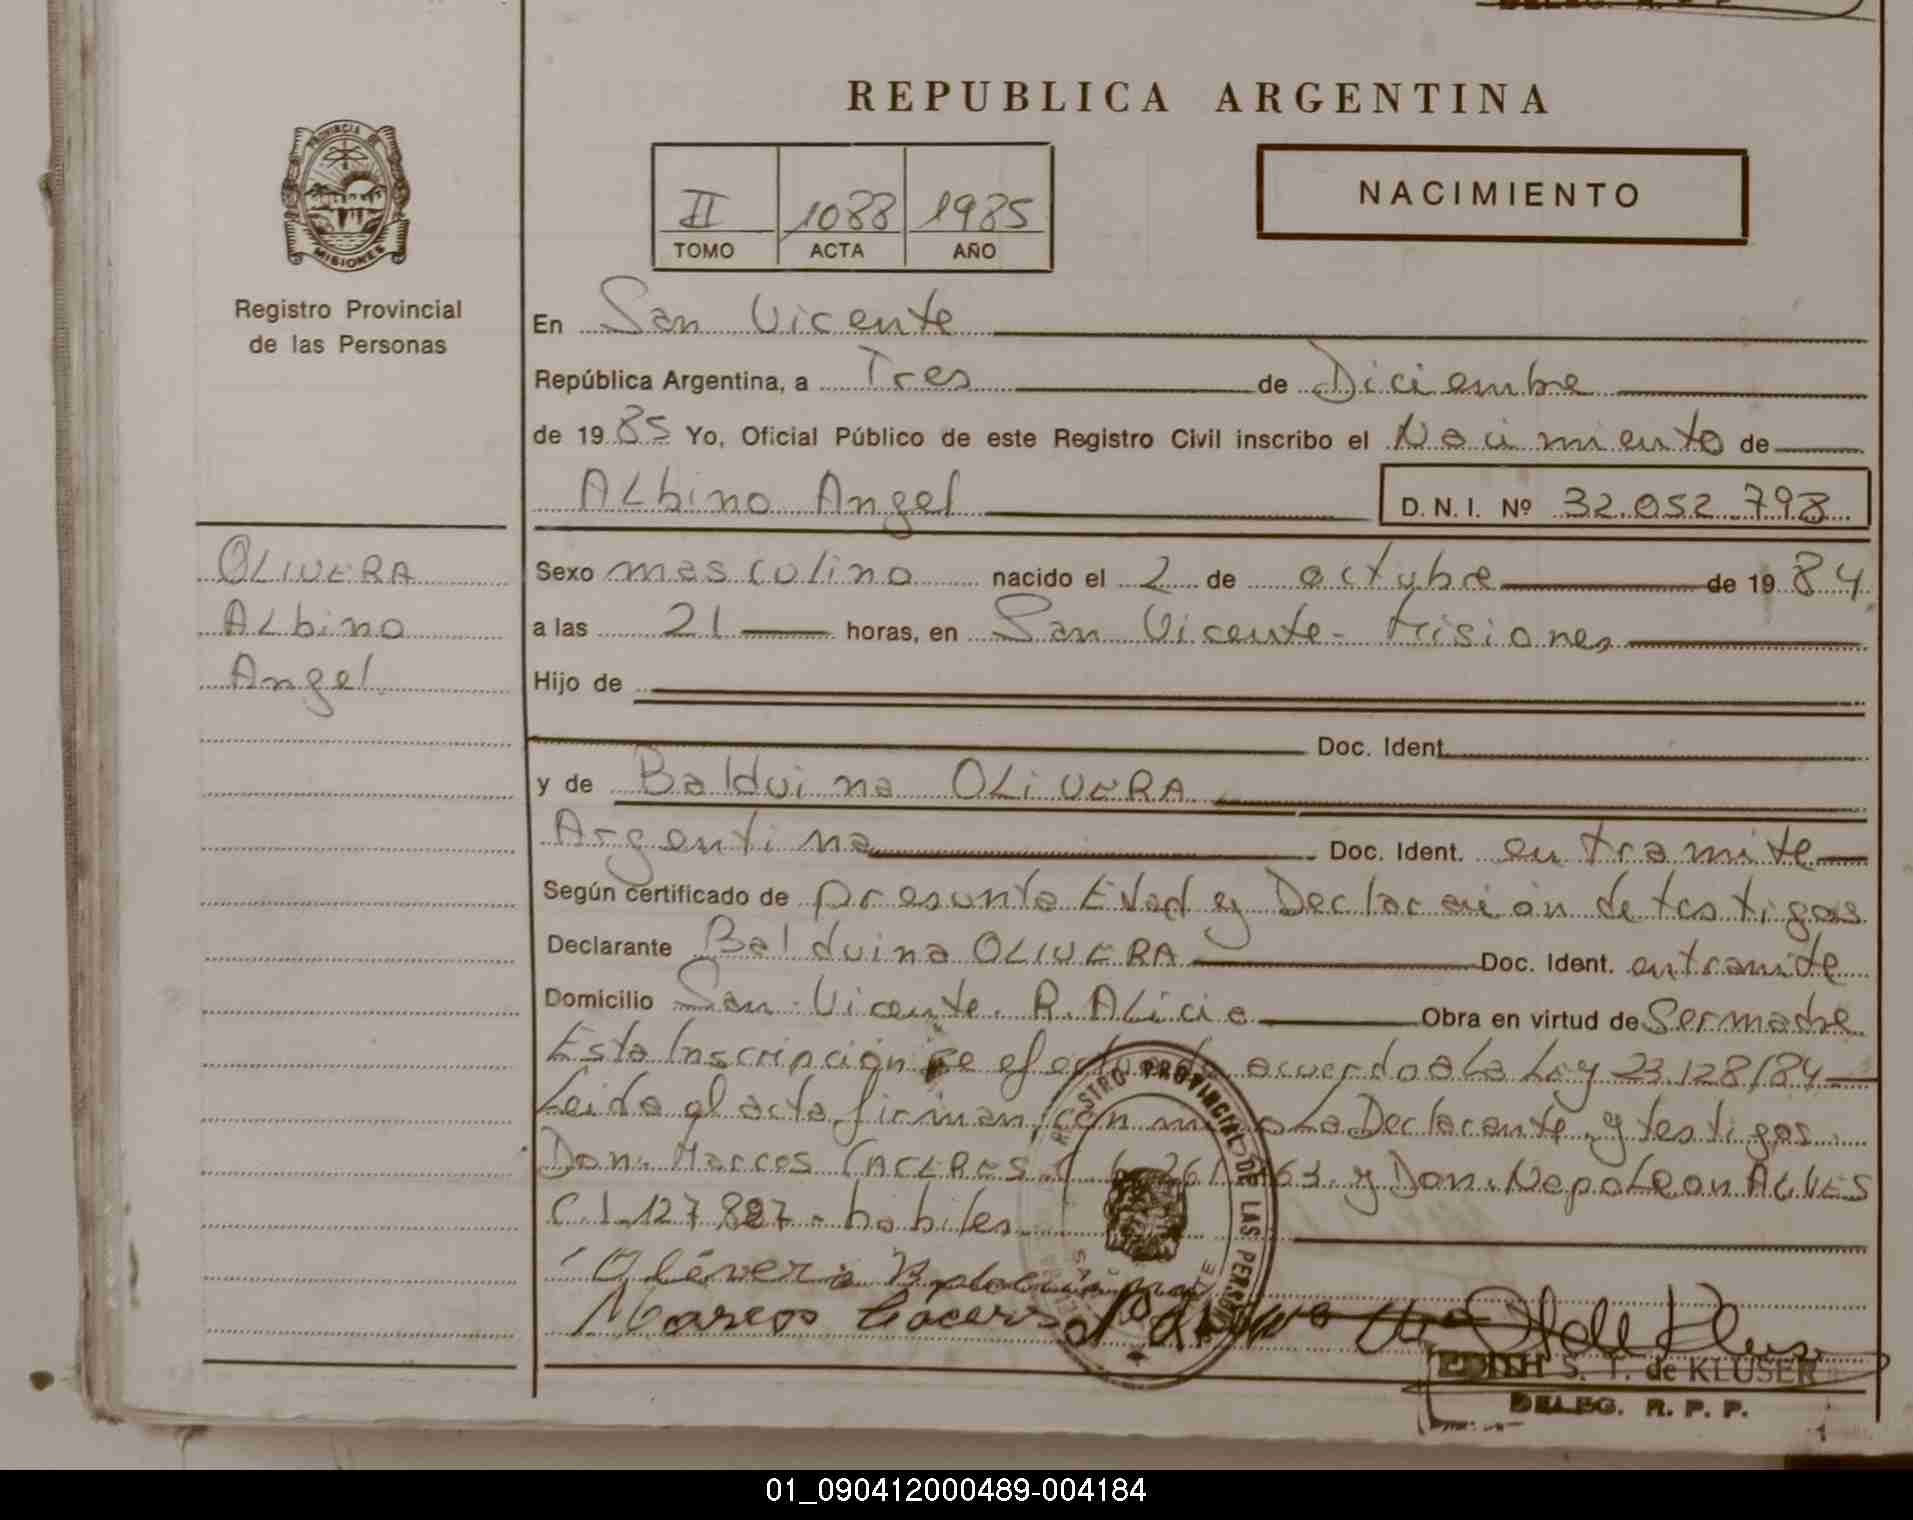 REPUBLICA ARGENTINA
PROVINCIA DE
MISIONES
II 1088 1985
TOMO ACTA AÑO
NACIMIENTO
Registro Provincial
de las Personas
En San Vicente
República Argentina, a Tres de Diciembre
de 1985 Yo, Oficial Público de este Registro Civil inscribo el Nacimiento de
Albino Angel D.N.I. Nº 32.052.798
OLIVERA
Albino
Angel
Sexo masculino nacido el 2 de octubre de 1984
a las 21 horas, en San Vicente - Misiones
Hijo de
Doc. Ident.
y de Balduina OLIVERA
Argentina Doc. Ident. en tramite
Según certificado de presunta Edad y Declaración de testigos
Declarante Balduina OLIVERA Doc. Ident. en tramite
Domicilio San Vicente. P. ALicia Obra en virtud de Ser madre
Esta Inscripción se efectua de acuerdo a La Ley 23.128/84
Leida el acta firman con La Declarante y testigos
Don. Marcos CACERES y Don. Nepoleon ALVES
C.I. 127.827 - habiles
Olivera Balduina
Marcos Caceres
REGISTRO PROVINCIAL DE LAS PERSONAS
EDITH S. T. de KLUSER
DELEG. R. P. P.
01_090412000489-004184